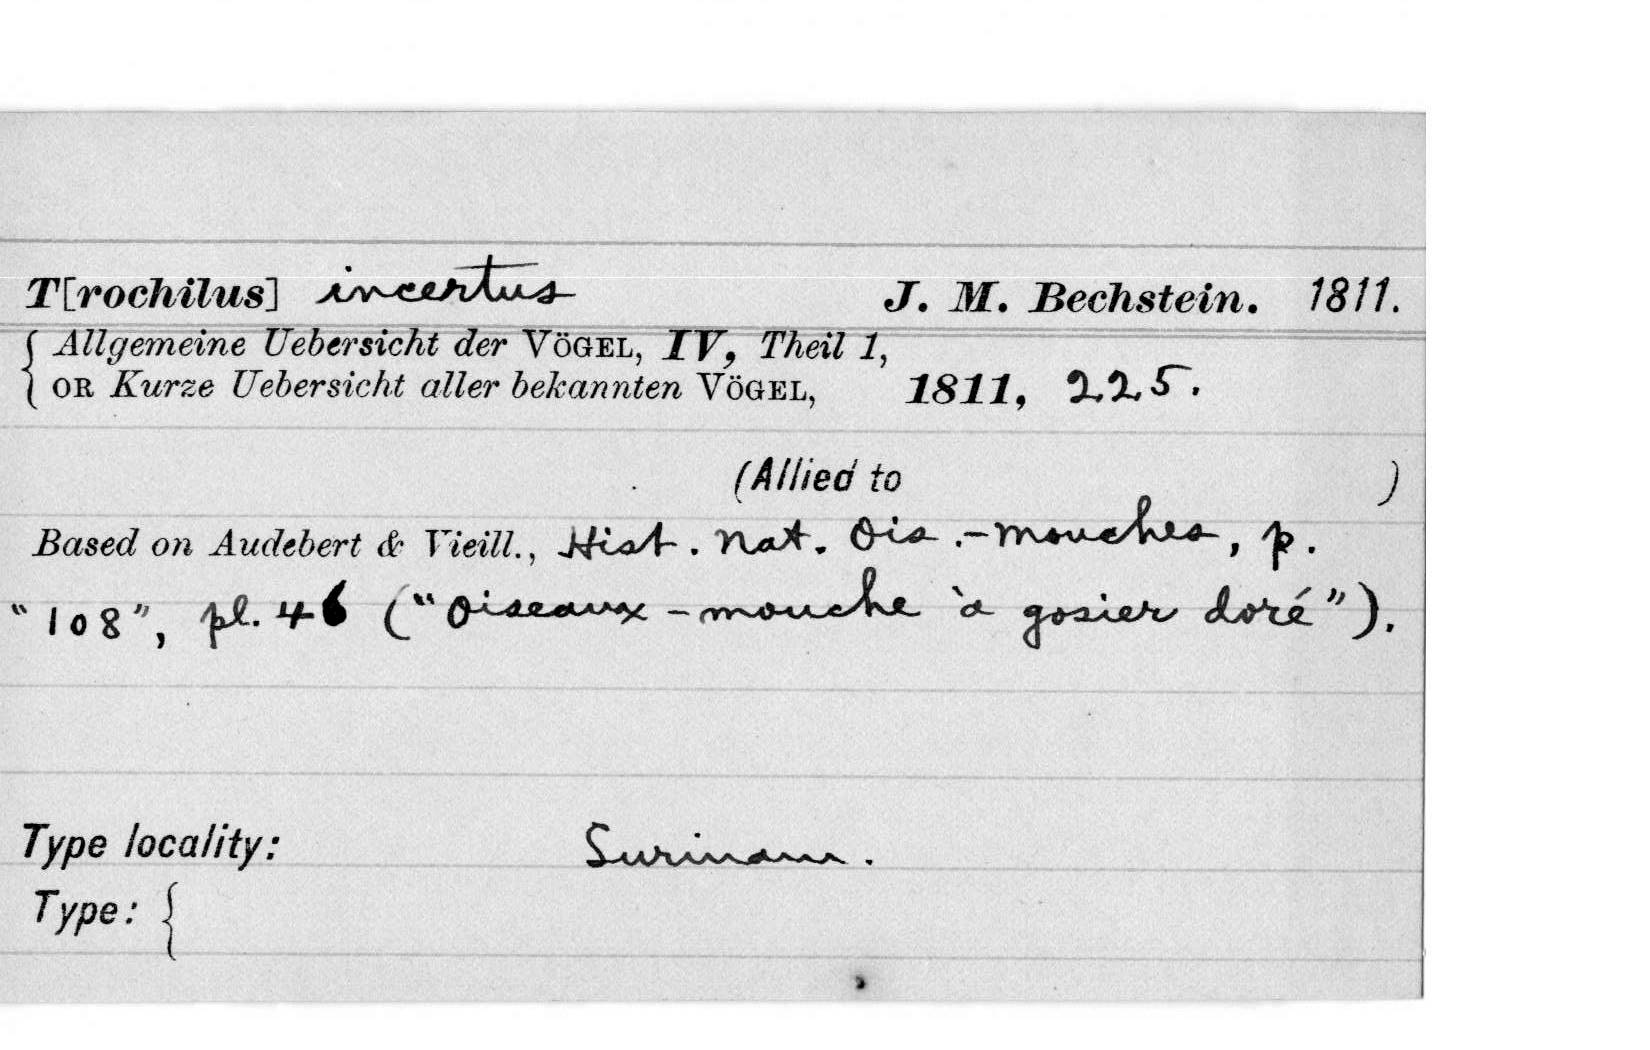 T[rochilus] incertus J. M. Bechstein. 1811.
{ Allgemeine Uebersicht der VÖGEL, IV, Theil 1,
OR Kurze Uebersicht aller bekannten VÖGEL, 1811, 225.
(Allied to )
Based on Audebert & Vieill., Hist. Nat. Ois.-mouches, p.
"108", pl. 46 ("Oiseaux-mouche à gosier doré").
Type locality: Surinam.
Type: {